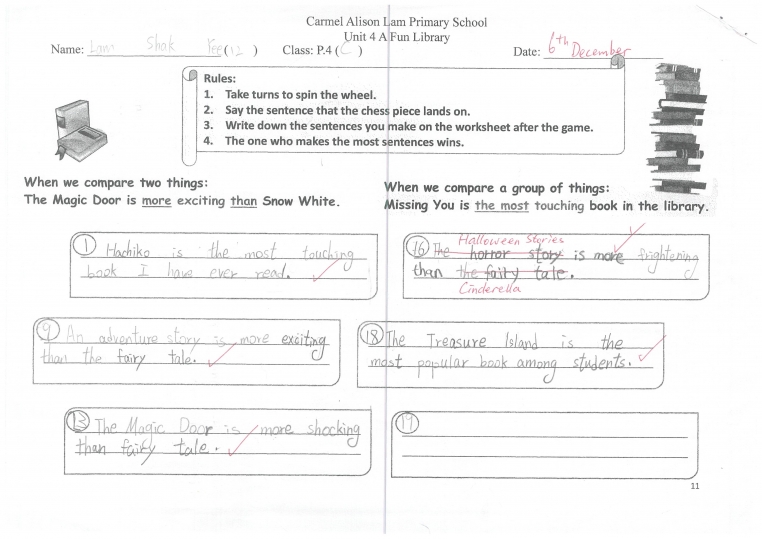 Carmel Alison Lam Primary School
Unit 4 A Fun Library
Name: Lam Shak Yee (12) Class: P.4 ( C ) Date: 6th December
Rules:
1. Take turns to spin the wheel.
2. Say the sentence that the chess piece lands on.
3. Write down the sentences you make on the worksheet after the game.
4. The one who makes the most sentences wins.
When we compare two things:
The Magic Door is more exciting than Snow White.
When we compare a group of things:
Missing You is the most touching book in the library.
1 Hachiko is the most touching
book I have ever read.
Halloween Stories
16 The horror story is more frightening
than the fairy tale.
Cinderella
9 An adventure story is more exciting
than the fairy tale.
18 The Treasure Island is the
most popular book among students.
13 The Magic Door is more shocking
than fairy tale.
19
11